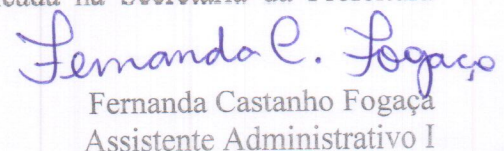 na Secretaria da
Fernanda C. Fogaça
Fernanda Castanho Fogaça
Assistente Administrativo I